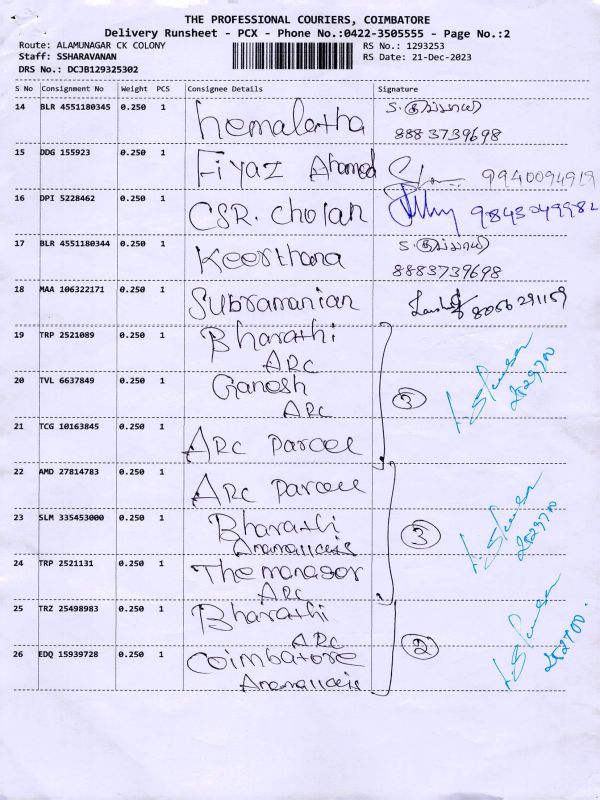 THE PROFESSIONAL COURIERS, COIMBATORE
Delivery Runsheet - PCX - Phone No.:0422-3505555 - Page No.:2
Route: ALAMUNAGAR CK COLONY RS No.: 1293253
Staff: SSHARAVANAN RS Date: 21-Dec-2023
DRS No.: DCJB129325302
S No Consignment No Weight PCS Consignee Details Signature
14 BLR 4551180345 0.250 1 hemalatha
8883739698
15 DDG 155923 0.250 1 Fiyaz Ahamed 9940094919
16 DPI 5228462 0.250 1 CSR. Cholan 9843049982
17 BLR 4551180344 0.250 1 Keerthana
8883739698
18 MAA 106322171 0.250 1 Subramanian 8056291159
19 TRP 2521089 0.250 1 Bharathi
ARC
20 TVL 6637849 0.250 1 Ganesh
ARC 3
21 TCG 10163845 0.250 1 ARC Parcel
22 AMD 27814783 0.250 1 ARC Parcel
23 SLM 335453000 0.250 1 Bharathi 3
24 TRP 2521131 0.250 1 The manager
ARC
25 TRZ 25498983 0.250 1 Bharathi
ARC 2
26 EDQ 15939728 0.250 1 Coimbatore